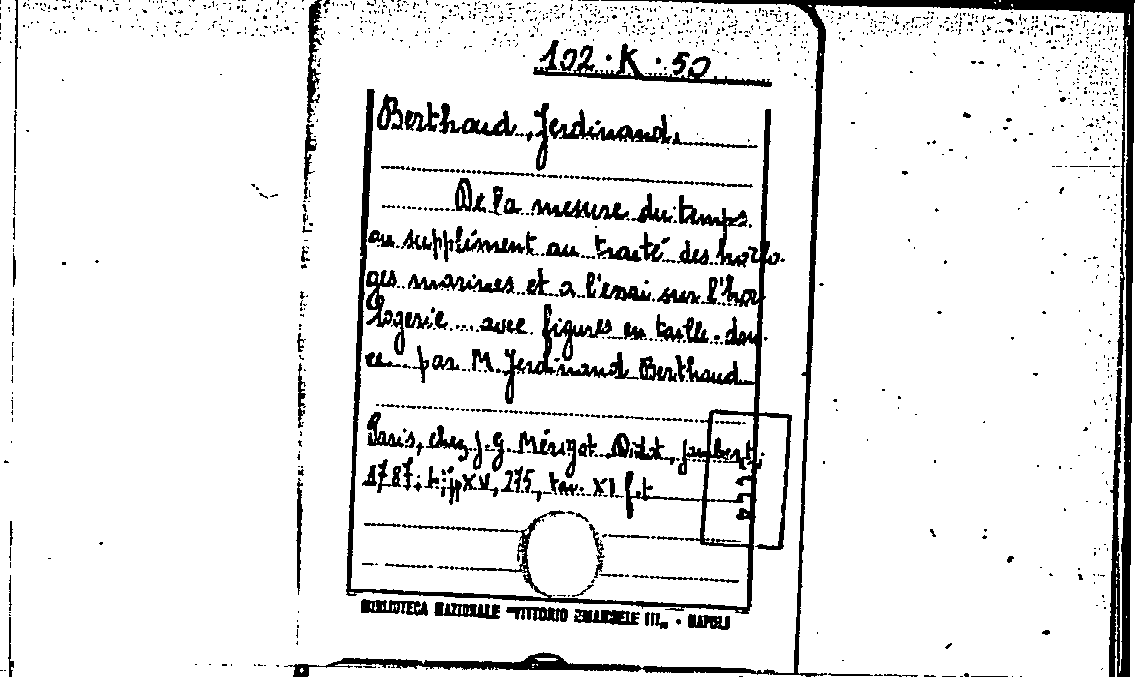 102·K·50
Berthoud, Ferdinand.
De la mesure du temps
ou supplément au traité des horlo-
ges marines et a l'essai sur l'hor
logerie... avec figures en taille-dou-
ce par M. Ferdinand Berthoud
Paris, chez J. G. Mérigot, Didot, Jombert,
1787; pp XV, 275, tav. XI f.t
BIBLIOTECA NAZIONALE "VITTORIO EMANUELE III" - NAPOLI